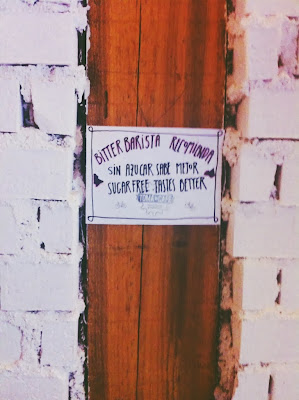 BITTER BARISTA RECOMIENDA
SIN AZUCAR SABE MEJOR
SUGARFREE TASTES BETTER